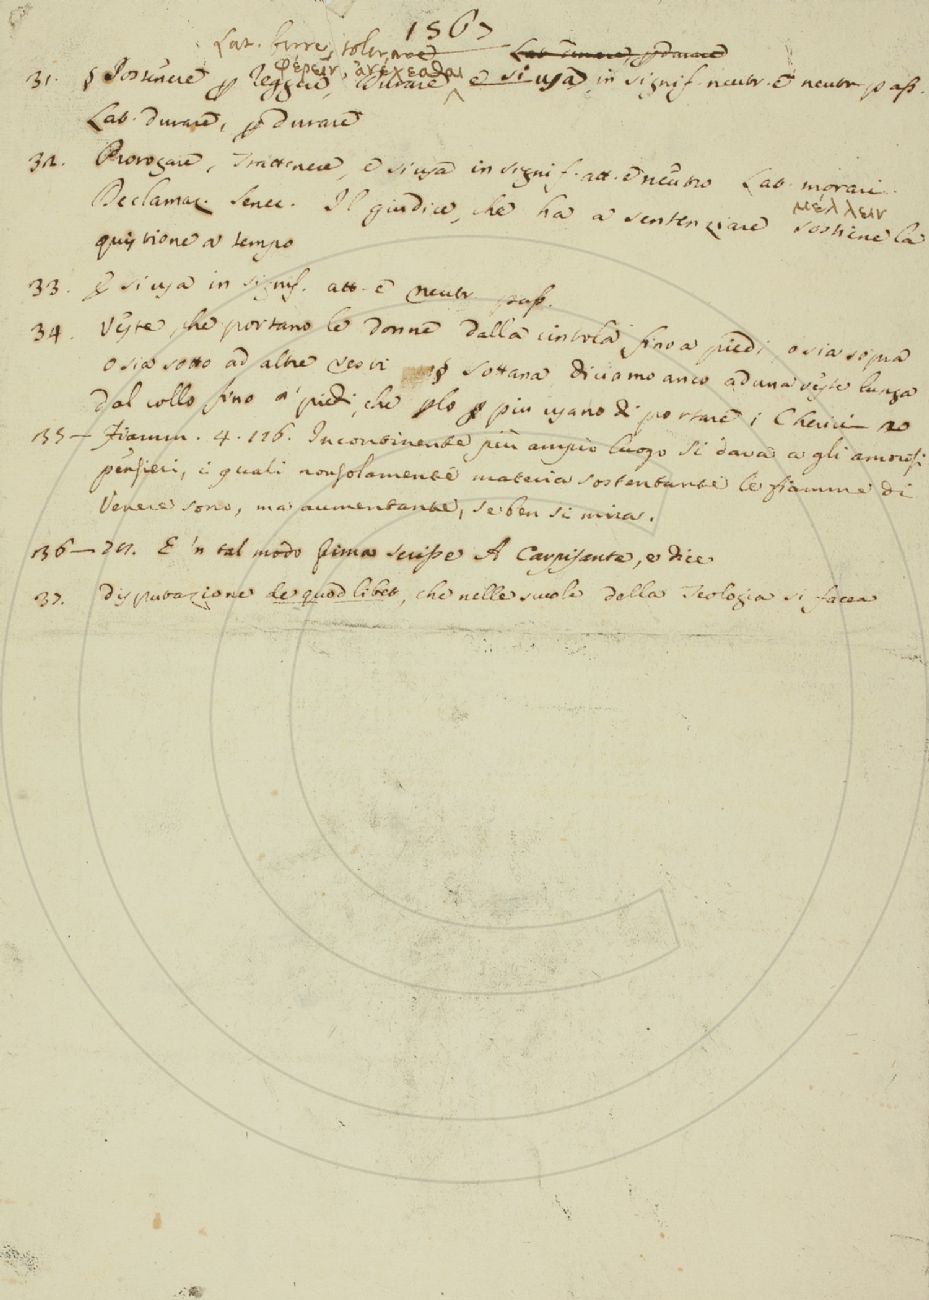 1567
Lat. ferre, tolerare
Lat. durare, perdurare
φέρειν, ἀνέχεσθαι
31. § Sostenere per Reggere, Durare e si usa in signif. neutr. e neutr. pass.
Lat. durare, perdurare
32. Prorogare, Trattenere, e si usa in signif. att. e neutro Lat. morari.
μέλλειν
Declamaz. Senec. Il giudice, che ha a sentenziare sostiene la
quistione a tempo
33. § si usa in signif. att. e neutr. pass.
34. Veste, che portano le Donne dalla cintola fino a piedi, o sia sopra
o sia sotto ad altre vesti § Sottana diciamo anco ad una veste lunga
dal collo fino a' piedi, che per lo più usano di portare i Cherici
135 — Fiamm. 4. 126. Incontinente più ampio luogo si dava a gli amorosi
pensieri, i quali non solamente materia sostentante le fiamme di
Venere sono, ma aumentante, se ben si mira.
136 — E 'n tal modo scisse A Carpisanta, e dice
37. disputazione de quodlibet, che nelle scuole della Teologia si facea